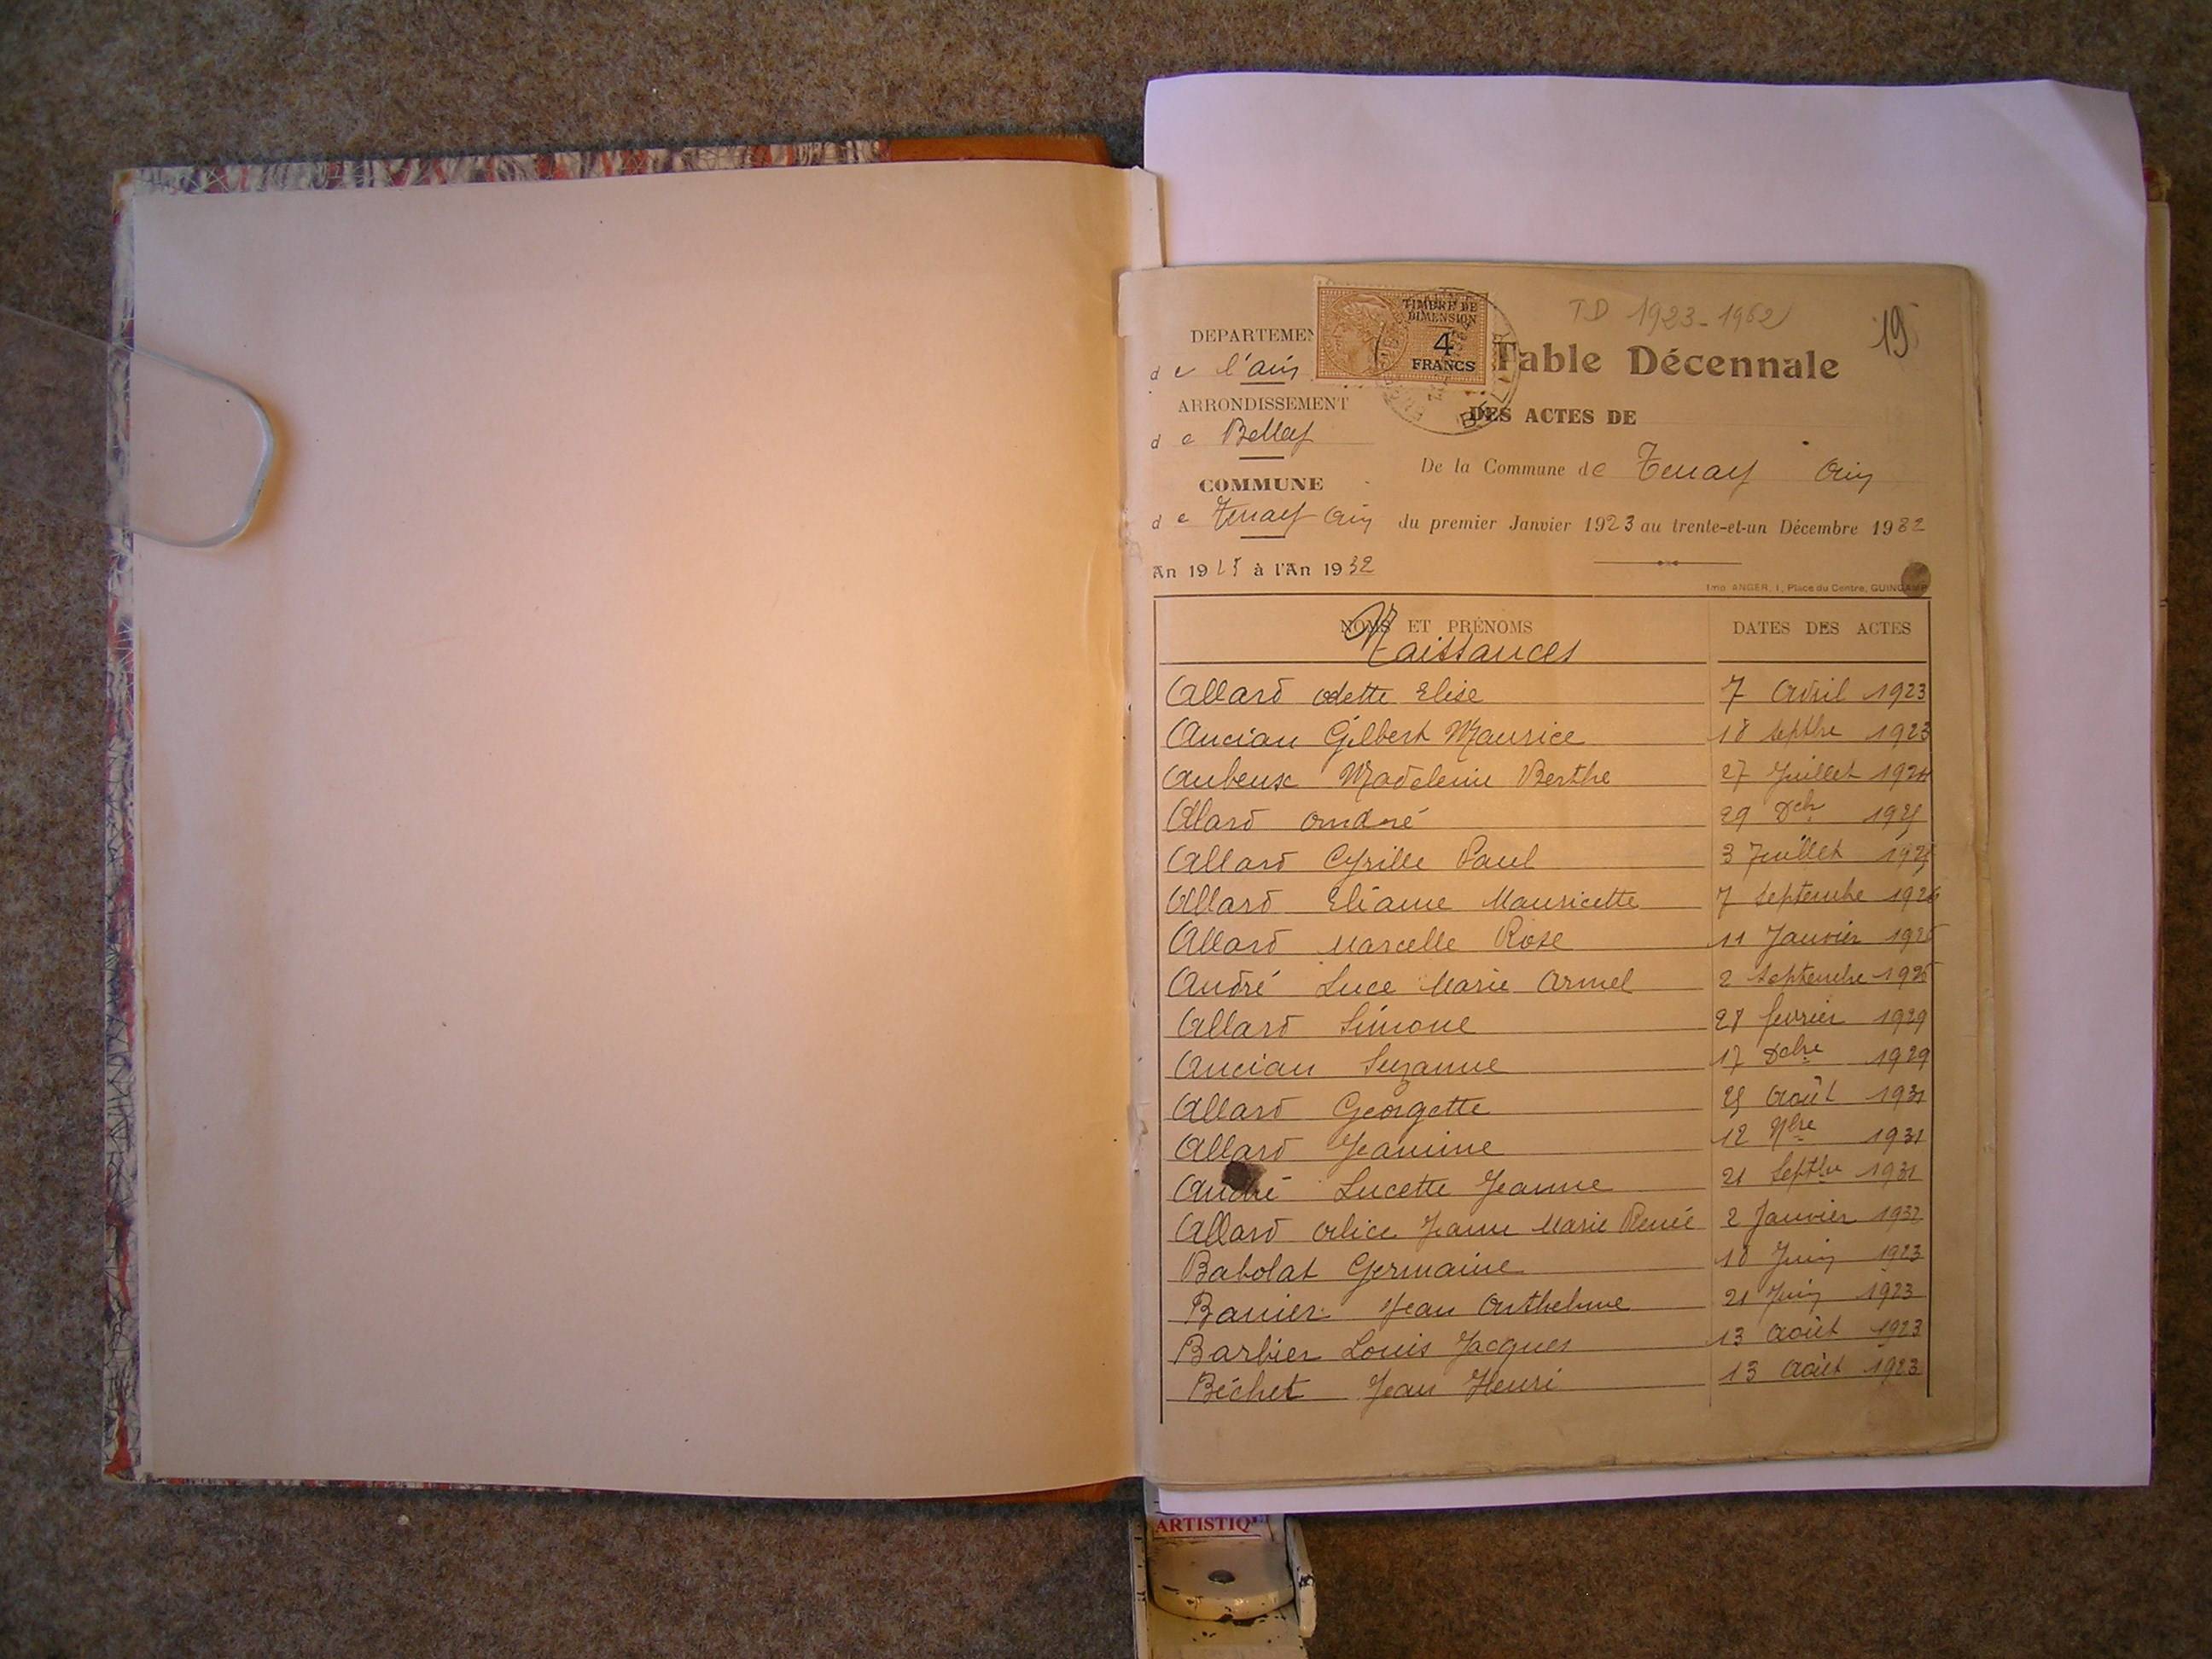 TD 1923-1962
19
TIMBRE DE
DIMENSION
4
FRANCS
DEPARTEMEN
de l'ain
Table Décennale
ARRONDISSEMENT
de Belley
DES ACTES DE
COMMUNE
De la Commune de Tenay Ain
de Tenay Ain
du premier Janvier 1923 au trente-et-un Décembre 1932
An 19 à l'An 1932
Imp. ANGER, 1, Place du Centre, GUINGAMP
NOMS ET PRÉNOMS DATES DES ACTES
Naissances
Allard odette Elise 7 Avril 1923
Ancian Gilbert Maurice 18 septbre 1923
Aubeux Madeleine Berthe 27 Juillet 1924
Allard André 29 Dcbr
Allard Cyrille Paul 3 Juillet
Allard Eliane Mauricette 7 Septembre 1926
Allard Marcelle Rose 11 Janvier
André Luce Marie Armel 2 Septembre
Allard Simone 28 fevrier 1929
Ancian Suzanne 17 Dcbre 1929
Allard Georgette Août 1931
Allard Jeanine 12 1931
André Lucette Jeanne 21 Septbre 1931
Allard Alice Jeanne Marie Renée 2 Janvier 1932
Babolat Germaine 10 Juin 1923
Banier Jean Anthelme 21 Juin 1923
Barbier Louis Jacques 13 Août 1923
Béchet Jean Henri 13 Août 1923
ARTISTIQ